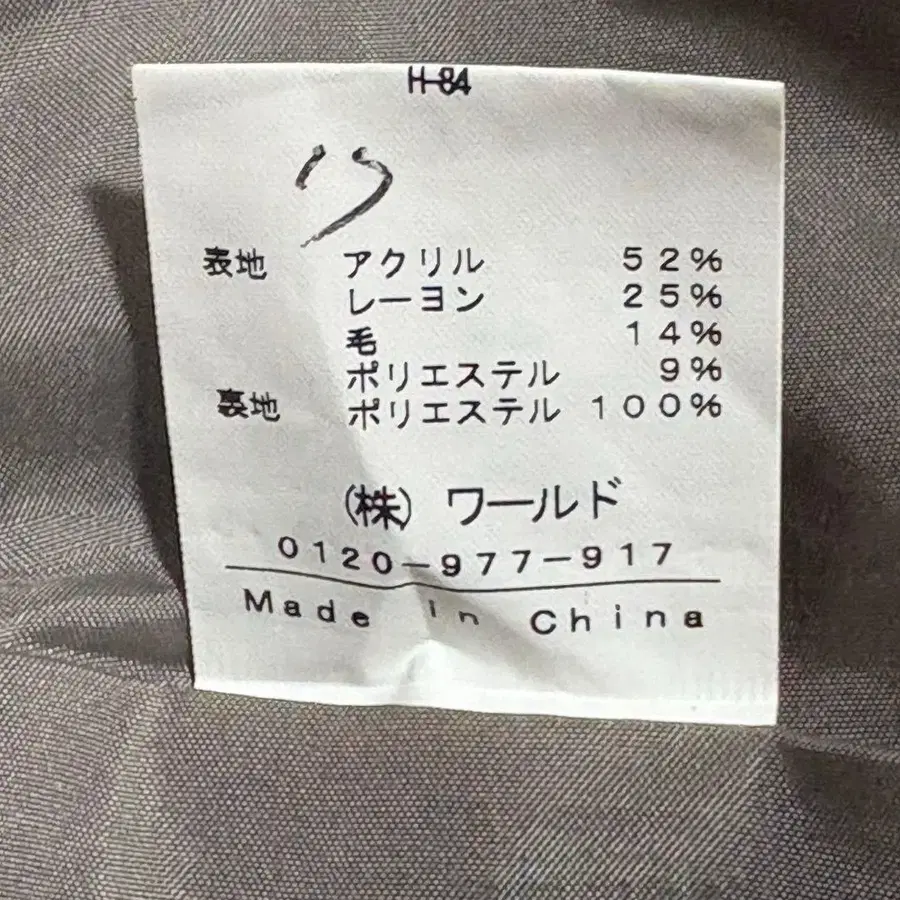 H-84
表地 アクリル 52%
レーヨン 25%
毛 14%
ポリエステル 9%
裏地 ポリエステル 100%
(株) ワールド
0120-977-917
Made in China